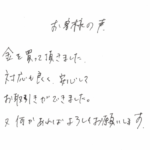 お客様の声
金を買って頂きました。
対応も良く、安心して
お取引きができました。
又何かあればよろしくお願いします。